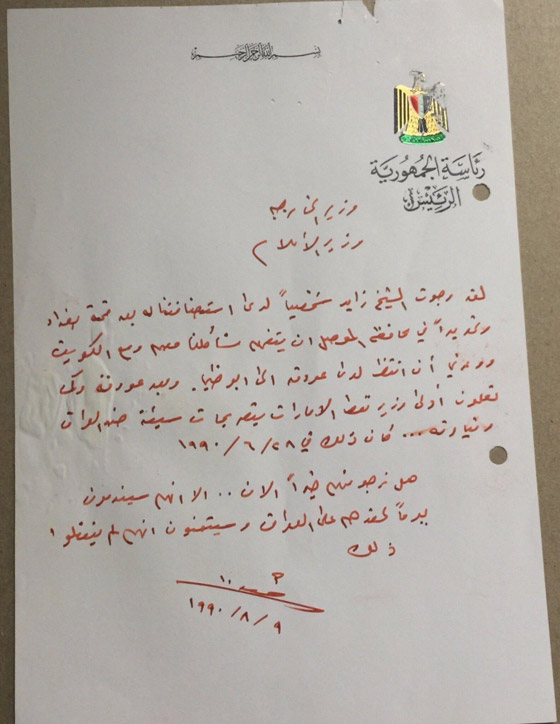 بسم الله الرحمن الرحيم
رئاسة الجمهورية
الرئيس
وزير الخارجية
وزير الأعلام
لقد رجوت الشيخ زايد شخصياً لدى استضافتنا له بعد قمة بغداد
وتحديداً في محافظة الموصل ان يتفهم مشاكلنا معهم ومع الكويت
ووعدني أن انتظر لدى عودته الى ابوظبي. وبعد عودته وكما
تعلمون أدلى وزير نفط الامارات بتصريحات سيئة ضد العراق
وقيادته... كان ذلك في ٢٨ / ٦ / ١٩٩٠
هل نرجو منهم خيراً الان .. الا انهم سيندمون
يوماً لحقدهم على العراق وسيتمنون انهم لم يفعلوا
ذلك
١٩٩٠ / ٨ / ٩